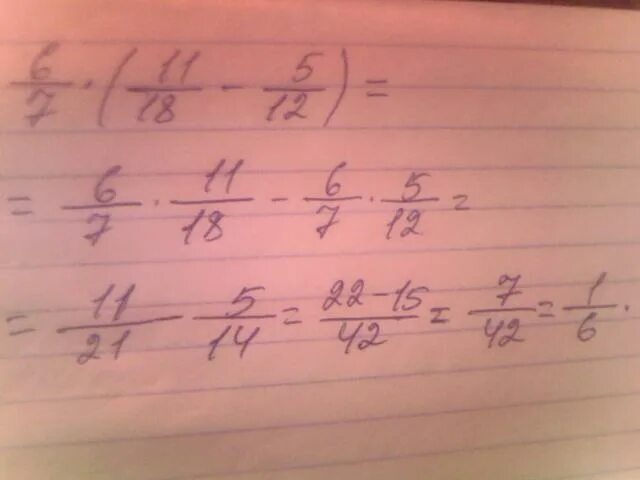 6/7 · (11/18 - 5/12) =
= 6/7 · 11/18 - 6/7 · 5/12 =
= 11/21 - 5/14 = 22-15/42 = 7/42 = 1/6.